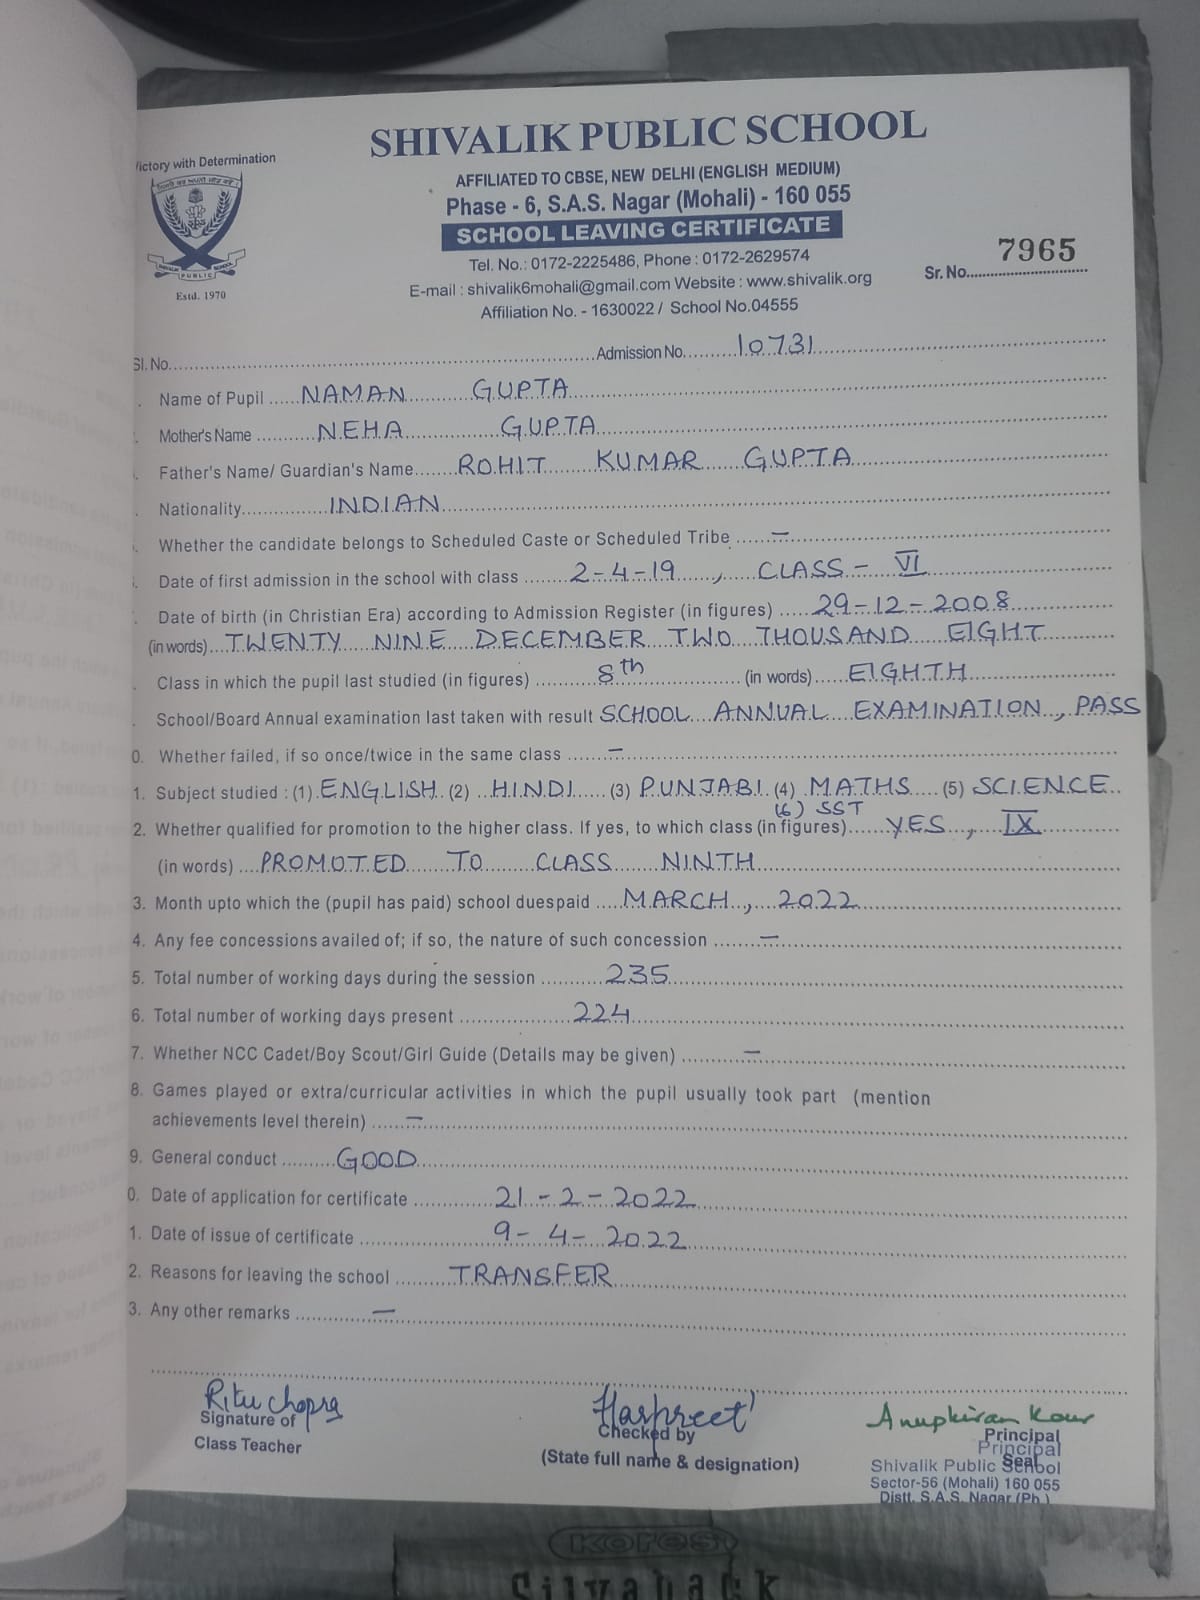 SHIVALIK PUBLIC SCHOOL
ictory with Determination
AFFILIATED TO CBSE, NEW DELHI (ENGLISH MEDIUM)
Phase - 6, S.A.S. Nagar (Mohali) - 160 055
SCHOOL LEAVING CERTIFICATE
Tel. No.: 0172-2225486, Phone : 0172-2629574
E-mail : shivalik6mohali@gmail.com Website : www.shivalik.org
Affiliation No. - 1630022 / School No.04555
Estd. 1970
PUBLIC
Sr. No. 7965
Sl. No. Admission No. 10731
Name of Pupil NAMAN GUPTA
Mother's Name NEHA GUPTA
Father's Name/ Guardian's Name ROHIT KUMAR GUPTA
Nationality INDIAN
Whether the candidate belongs to Scheduled Caste or Scheduled Tribe. –
Date of first admission in the school with class 2-4-19, CLASS - VI
Date of birth (in Christian Era) according to Admission Register (in figures) 29-12-2008
(in words) TWENTY NINE DECEMBER TWO THOUSAND EIGHT
Class in which the pupil last studied (in figures) 8th (in words) EIGHTH
School/Board Annual examination last taken with result SCHOOL ANNUAL EXAMINATION, PASS
0. Whether failed, if so once/twice in the same class –
1. Subject studied : (1) ENGLISH (2) HINDI (3) PUNJABI (4) MATHS (5) SCIENCE
(6) SST
2. Whether qualified for promotion to the higher class. If yes, to which class (in figures) YES, IX
(in words) PROMOTED TO CLASS NINTH
3. Month upto which the (pupil has paid) school duespaid MARCH, 2022
4. Any fee concessions availed of; if so, the nature of such concession –
5. Total number of working days during the session 235
6. Total number of working days present 224
7. Whether NCC Cadet/Boy Scout/Girl Guide (Details may be given) –
8. Games played or extra/curricular activities in which the pupil usually took part (mention
achievements level therein) –
9. General conduct GOOD
0. Date of application for certificate 21-2-2022
1. Date of issue of certificate 9-4-2022
2. Reasons for leaving the school TRANSFER
3. Any other remarks –
Ritu Chopra
Signature of
Class Teacher
Harpreet
Checked by
(State full name & designation)
Anupkiran Kaur
Principal
Principal
Seal
Shivalik Public School
Sector-56 (Mohali) 160 055
Distt. S.A.S. Nagar (Pb.)
kores